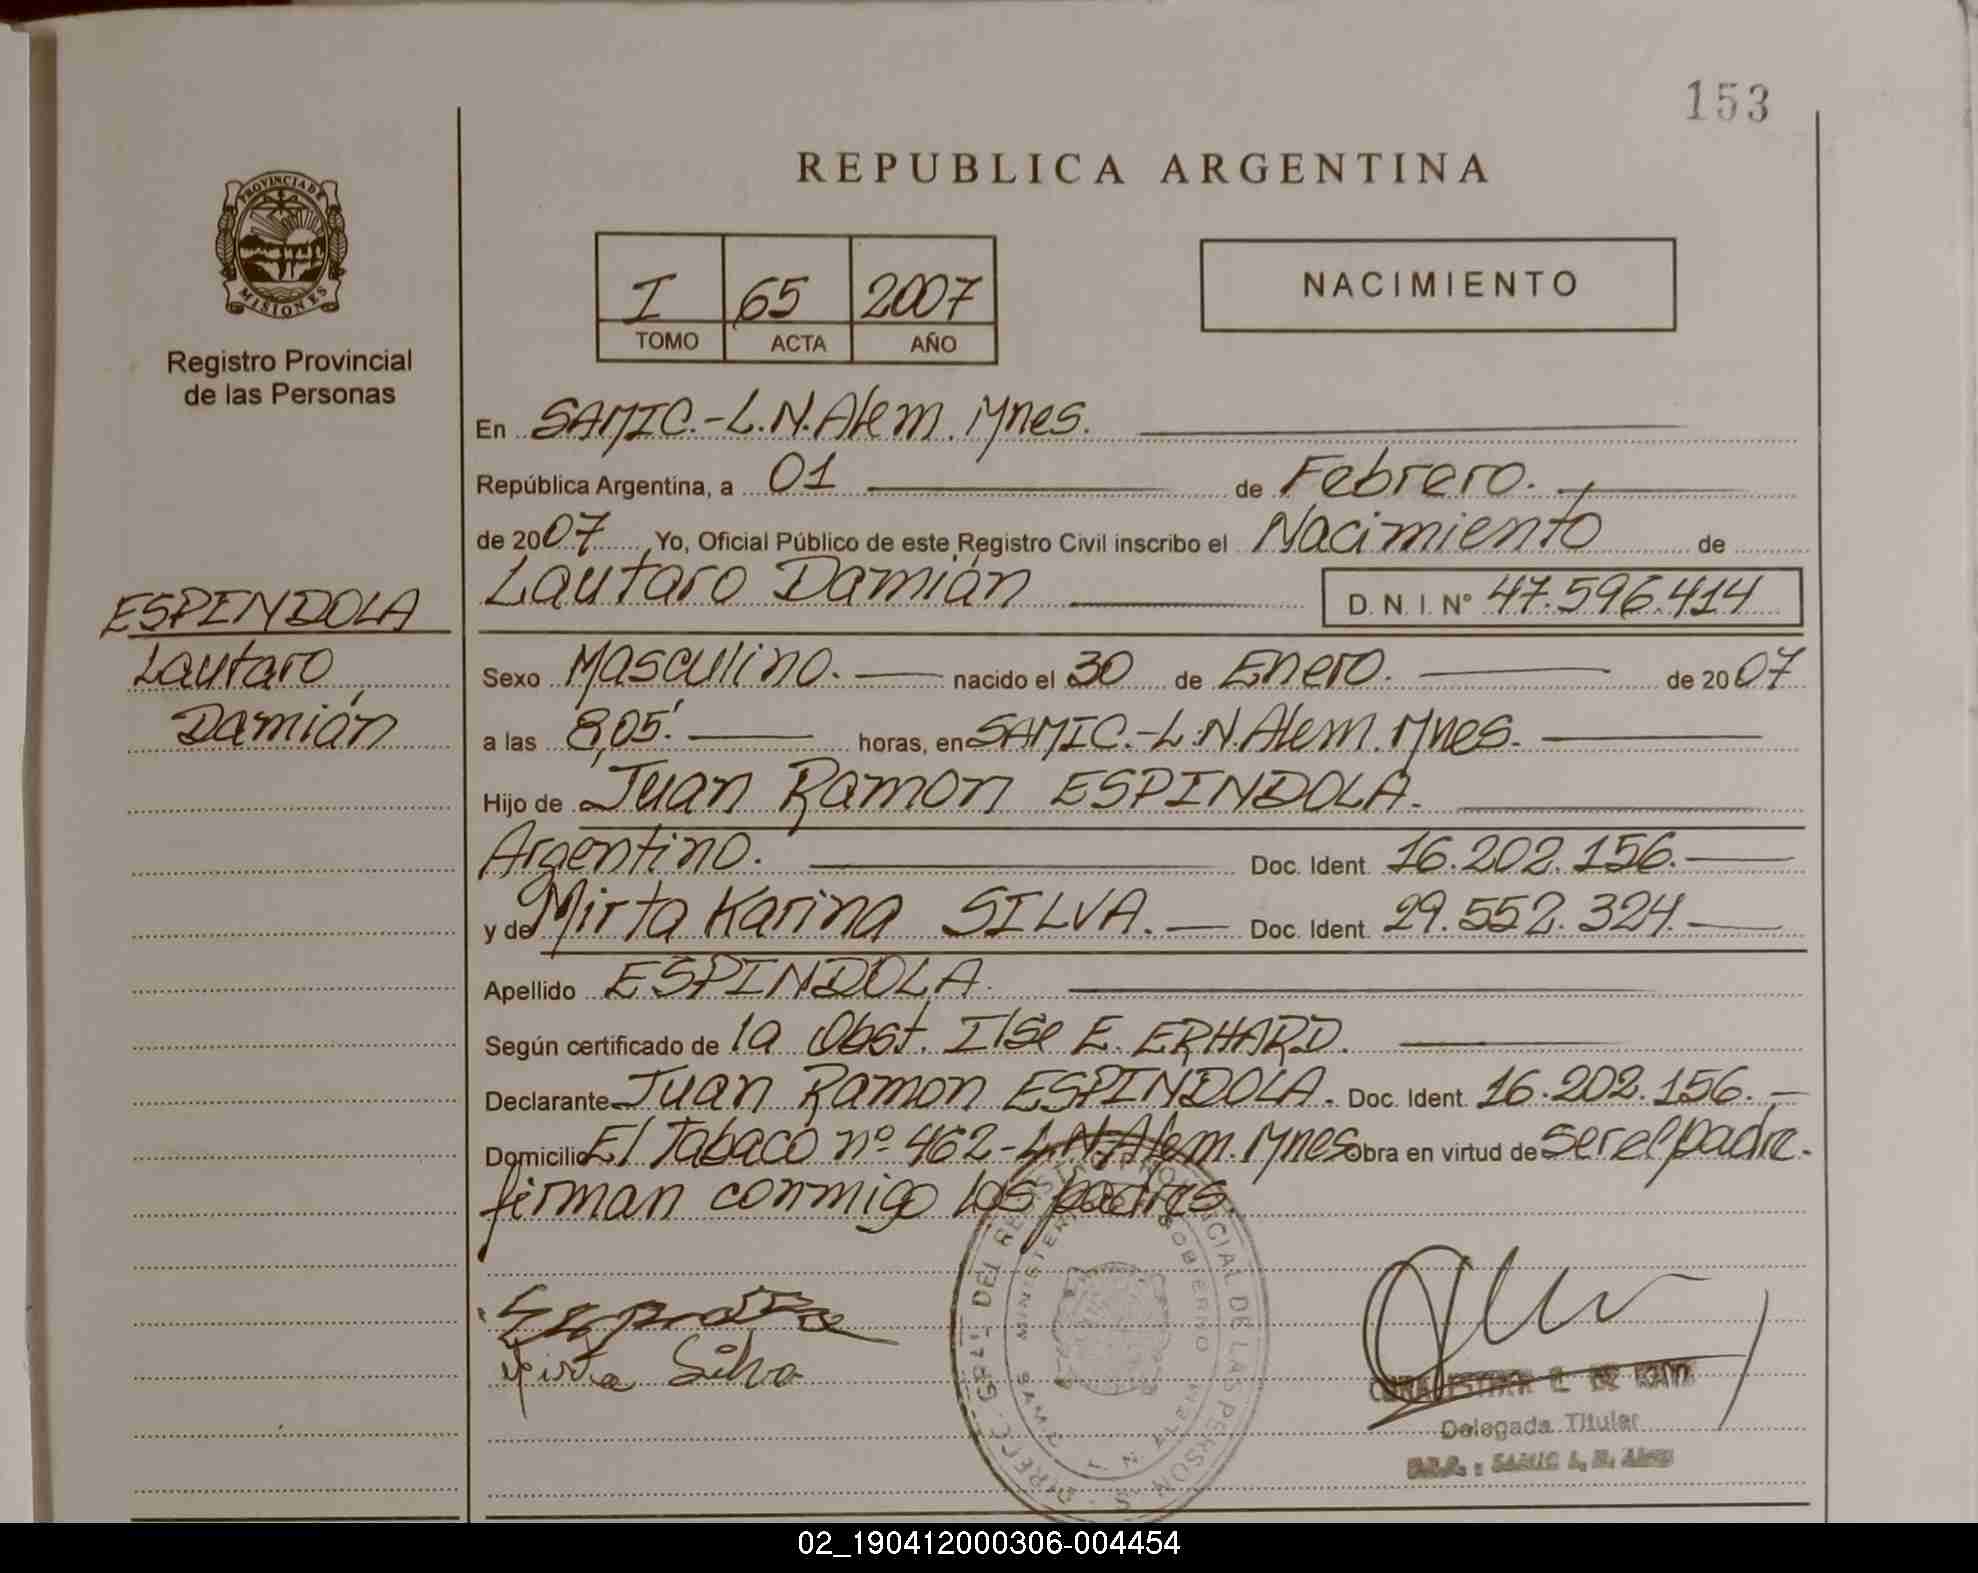 153
REPUBLICA ARGENTINA
PROVINCIA DE
MISIONES
Registro Provincial
de las Personas
I 65 2007
TOMO ACTA AÑO
NACIMIENTO
En SAMIC.-L.N.Alem. Mnes.
República Argentina, a 01 de Febrero.
de 2007 Yo, Oficial Público de este Registro Civil inscribo el Nacimiento de
Lautaro Damián D.N.I. Nº 47.596.414
ESPINDOLA
Lautaro
Damián
Sexo Masculino. nacido el 30 de Enero. de 2007
a las 8,05' horas, en SAMIC.-L.N.Alem. Mnes.
Hijo de Juan Ramon ESPINDOLA.
Argentino. Doc. Ident. 16.202.156.
y de Mirta Karina SILVA. Doc. Ident. 29.552.324.
Apellido ESPINDOLA.
Según certificado de la Obst. Ilse E. ERHARD.
Declarante Juan Ramon ESPINDOLA. Doc. Ident. 16.202.156.
Domicilio El Tabaco nº 462-L.N.Alem. Mnes Obra en virtud de ser el padre.
firman conmigo los padres.
Mirta Silva
Delegada Titular
02_190412000306-004454